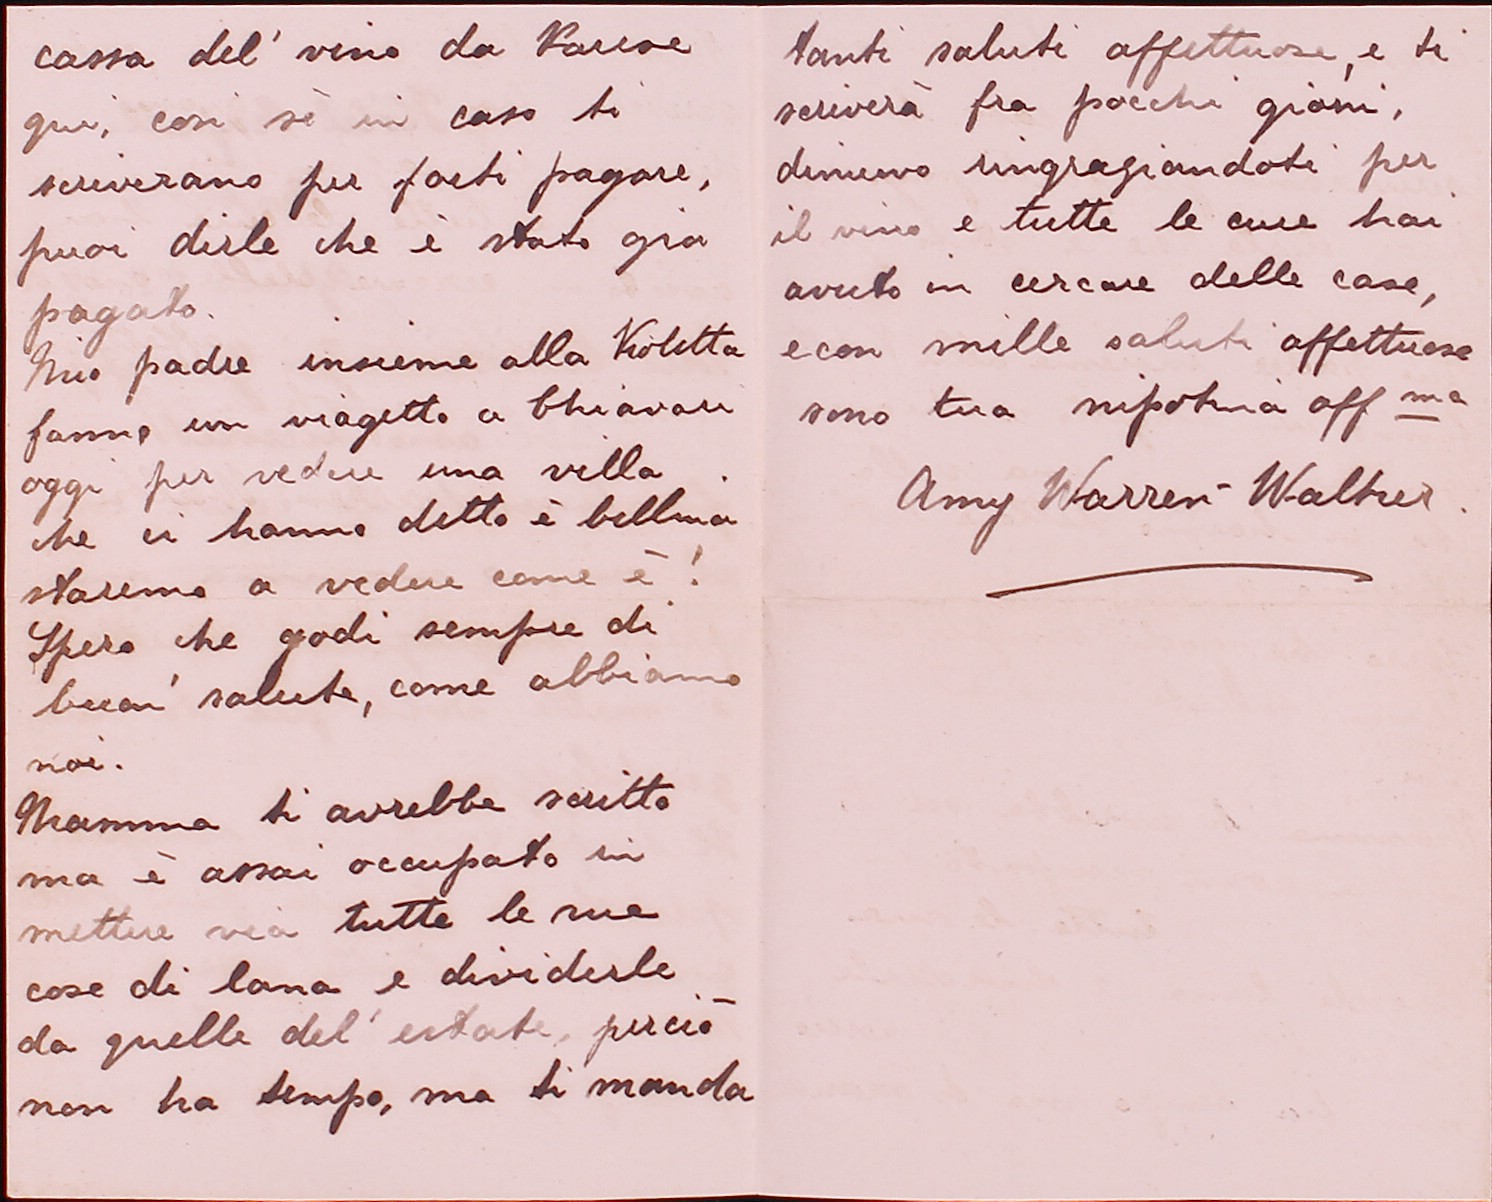 cassa del' vino da Varese
qui, cosi sè in caso ti
scriverano per farti pagare,
puoi dirle che è stato gia
pagato.
Mio padre insieme alla Violetta
fanno un viagetto a Chiavari
oggi per vedere una villa
che ci hanno detto è bellina
staremo a vedere come è!
Spero che godi sempre di
buon' salute, come abbiamo
noi.
Mamma ti avrebbe scritto
ma è assai occupato in
mettere via tutte le sue
cose di lana e dividerle
da quelle del' estate, perciò
non ha tempo, ma ti manda
tanti saluti affettuose, e ti
scriverà fra pocchi giorni,
dinuovo ringragiandoti per
il vino e tutte le cure hai
avuto in cercare delle case,
e con mille saluti affettuose
sono tua nipotina aff ma
Amy Warren-Walker.